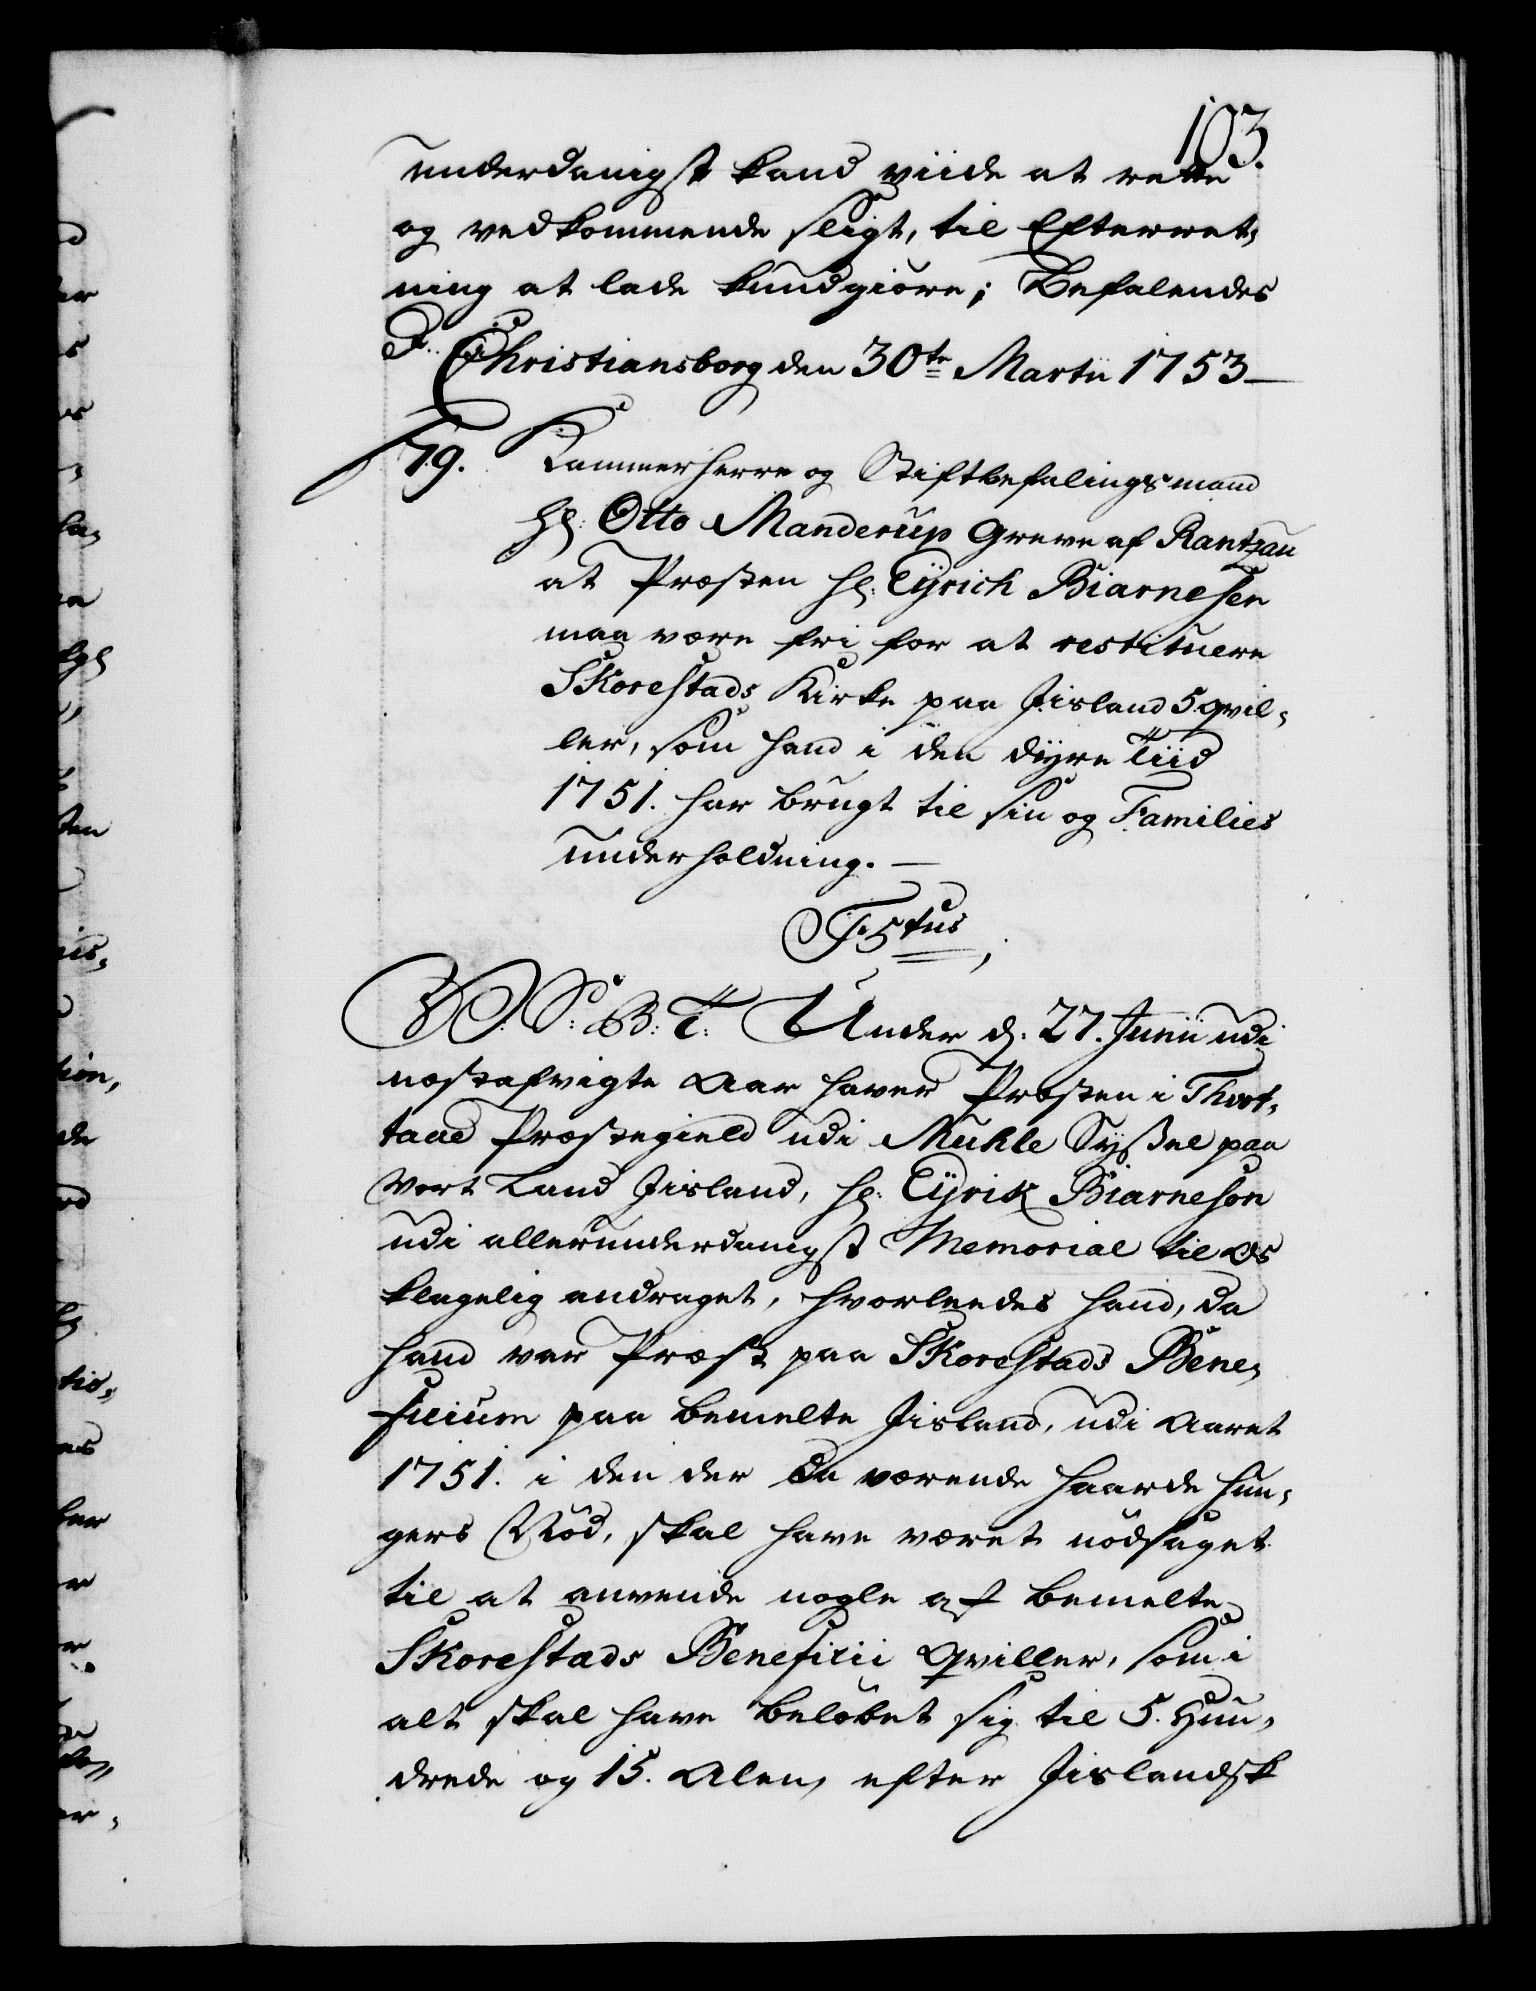 103.
underdanigst kand viide at rette
og vedkommende sligt, til Efterret,
ning at lade kundgiöre; Befalendes
Christiansborg den 30te Martii 1753 —
79. Kammerherre og Stiftbefalingsmand
Hr: Otto Manderup Greve af Rantzau
at Præsten Hr: Eÿrich Biarnesen
maa være fri for at restituere
Skorestads Kirke paa Jisland 5 qvil,
ler, som hand i den dÿre Tiid
1751. har brugt til sin og Families
underholdning. —
F. 5tus,
V. S: B: T. Under d. 27. Junii udi
næstafvigte Aar haver Præsten i Thvot,
taae Præstegield udi Muhle Sÿssel paa
Vort Land Jisland, Hr: Eÿrik Biarneson
udi allerunderdanigst Memorial til Os
klagelig andraget, hvorleedes hand, da
hand var Præst paa Skorestads Bene,
ficium paa bemelte Jisland, udi Aaret
1751. i den der da værende haarde Hun,
gers Nöd, skal have været nödsaget
til at anvende nogle af bemelte
Skorestads Beneficii Qviller, som i
alt skal have belöbet sig til 5. Hun,
drede og 15. Alen, efter Jislandsk